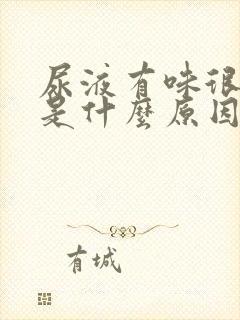 尿液有味很
是什麼原因
有城